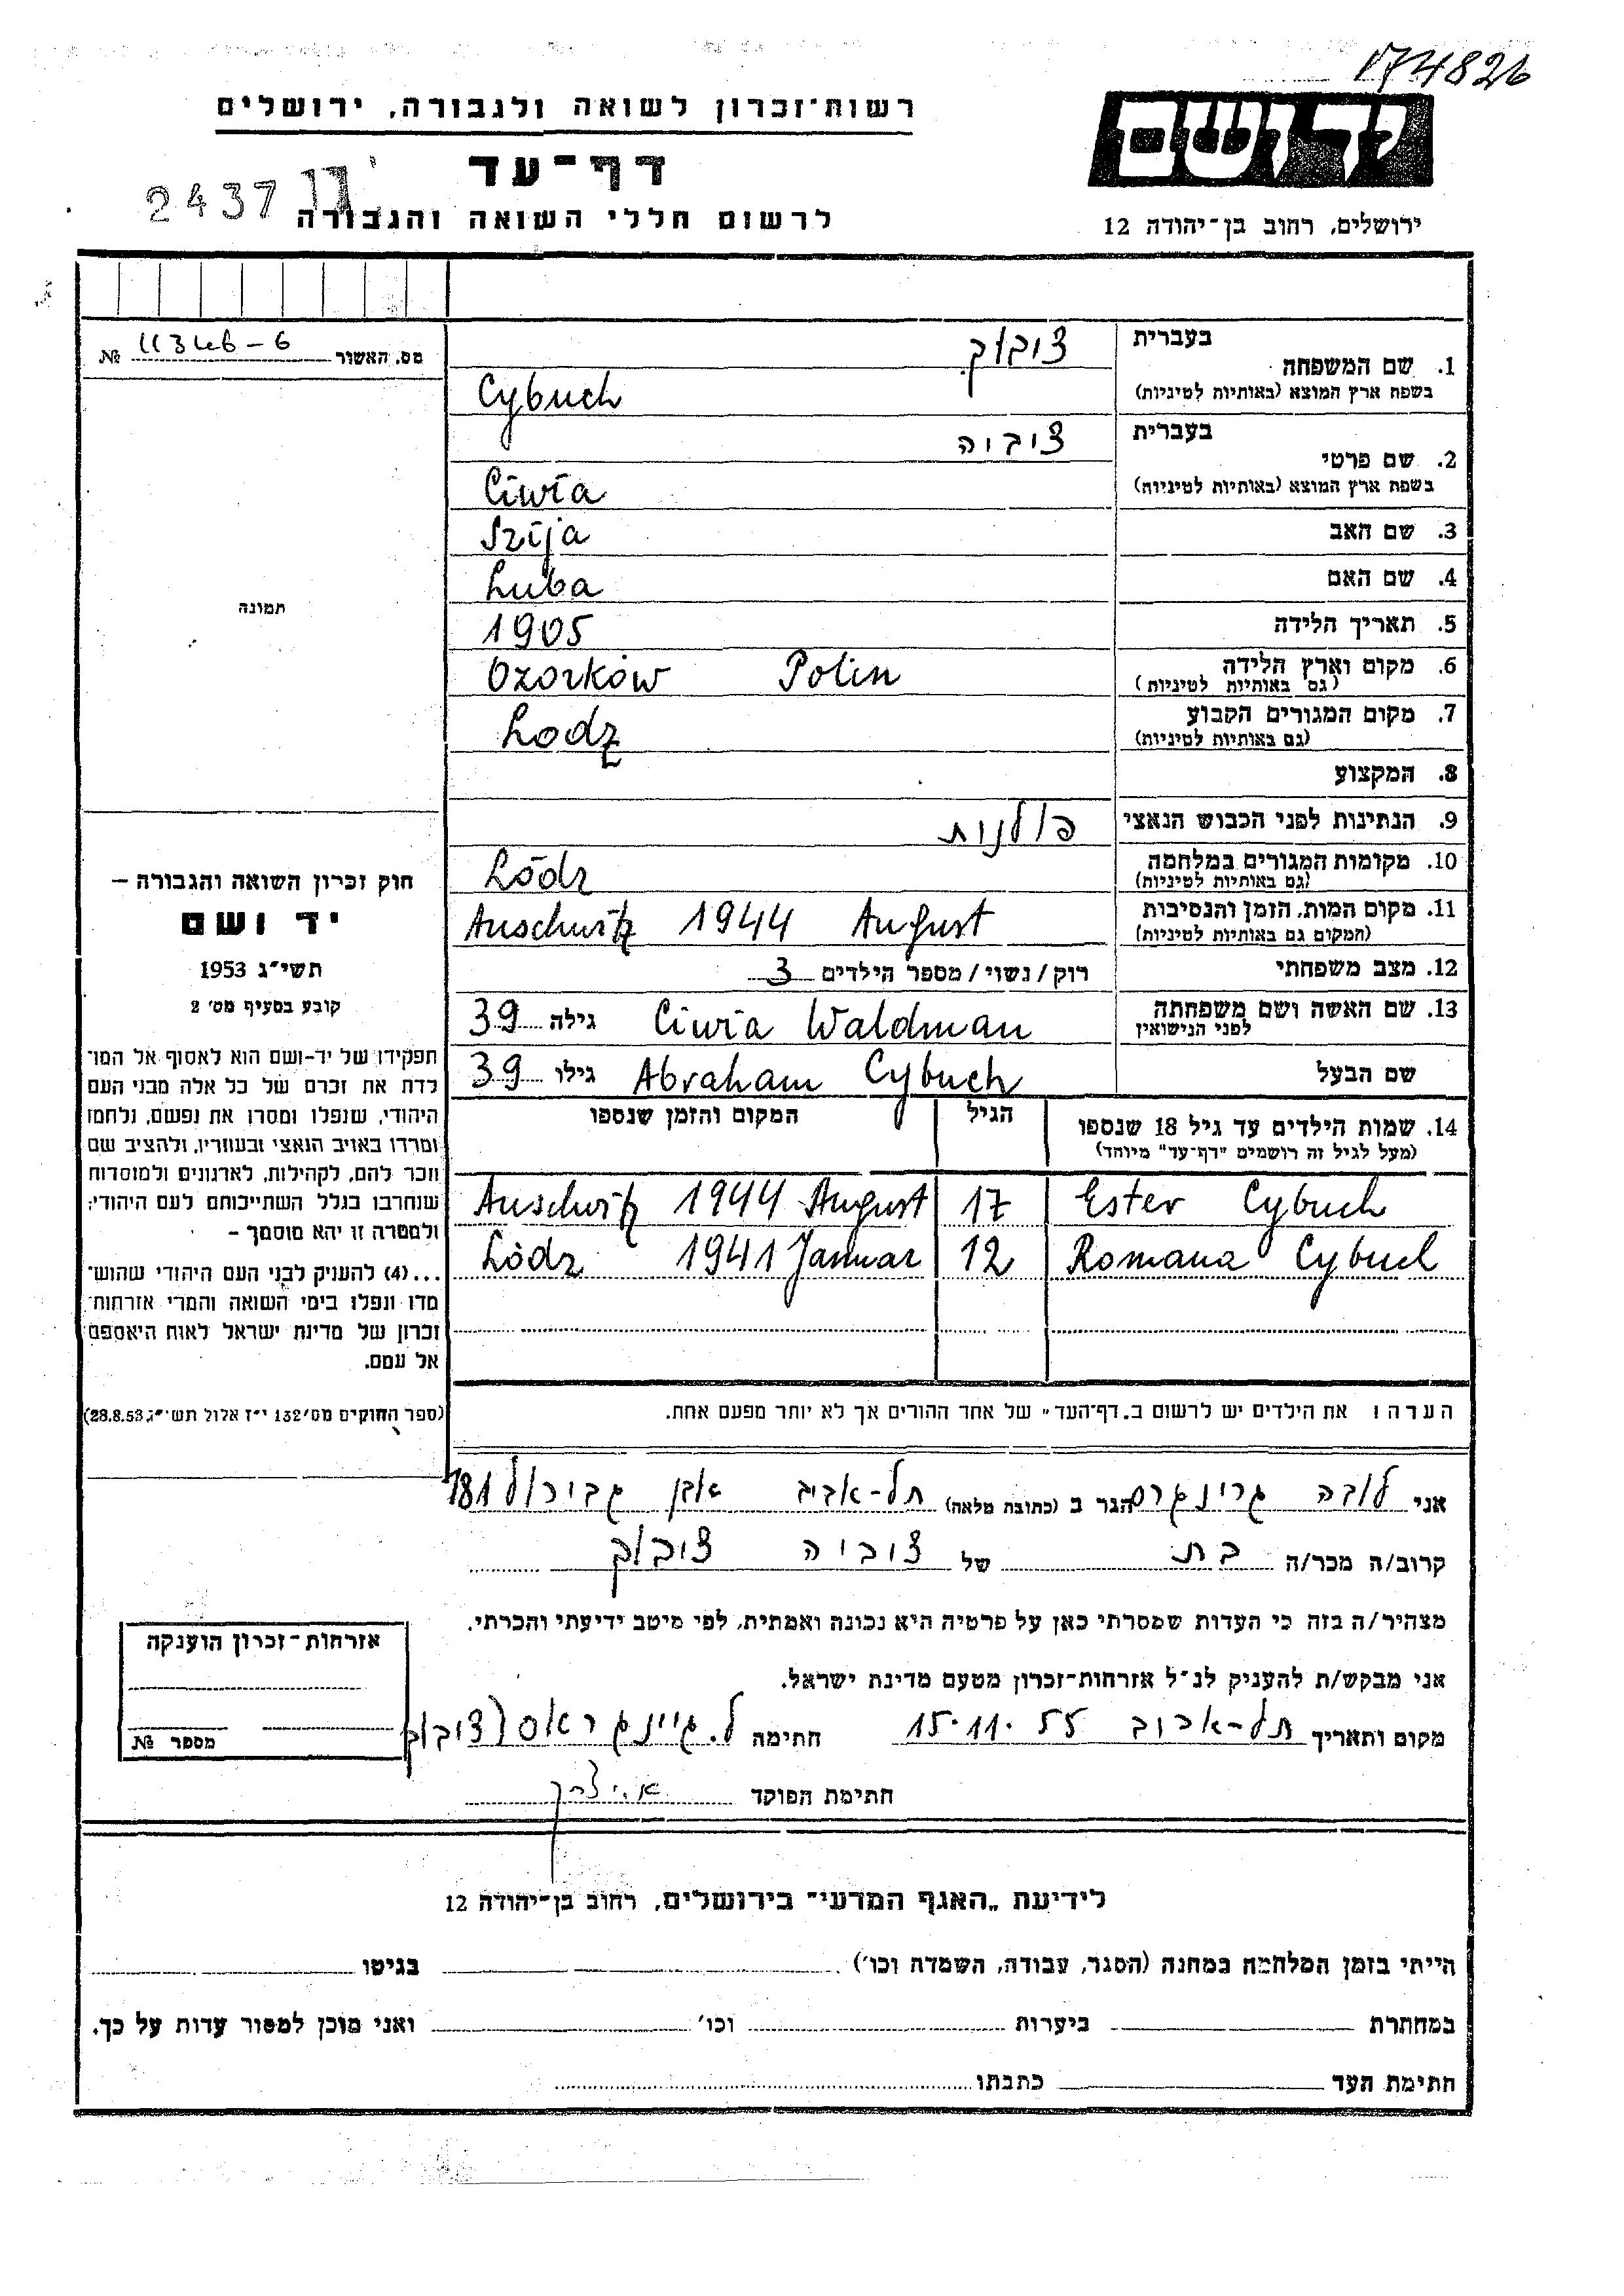 174826
רשות־זכרון לשואה ולגבורה, ירושלים
דף־עד
2437
לרשום חללי השואה והגבורה
ידושם
ירושלים, רחוב בן־יהודה 12
מס. האשור №
1. שם המשפחה בעברית ציבוך
בשפת ארץ המוצא (באותיות לטיניות) Cybuch
2. שם פרטי בעברית ציביה
בשפת ארץ המוצא (באותיות לטיניות) Ciwia
3. שם האב Szija
4. שם האם Luba
5. תאריך הלידה 1905
6. מקום וארץ הלידה (גם באותיות לטיניות) Ozorków Polin
7. מקום המגורים הקבוע (גם באותיות לטיניות) Lodz
8. המקצוע
9. הנתינות לפני הכבוש הנאצי פולנית
10. מקומות המגורים במלחמה (גם באותיות לטיניות) Lódz
11. מקום המות, הזמן והנסיבות (המקום גם באותיות לטיניות) Auschwitz 1944 August
12. מצב משפחתי רוק/נשוי/מספר הילדים 3
13. שם האשה ושם משפחתה לפני הנישואין Ciwia Waldman גילה 39
שם הבעל Abraham Cybuch גילו 39
14. שמות הילדים עד גיל 18 שנספו (מעל לגיל זה רושמים "דף־עד" מיוחד) הגיל המקום והזמן שנספו
Ester Cybuch 17 Auschwitz 1944 August
Romana Cybuch 12 Lódz 1941 Januar
הערה: את הילדים יש לרשום ב„דף־העד" של אחד ההורים אך לא יותר מפעם אחת.
תמונה
חוק זכרון השואה והגבורה –
יד ושם
תשי"ג 1953
קובע בסעיף מס' 2
תפקידו של יד-ושם הוא לאסוף אל המו־
לדת את זכרם של כל אלה מבני העם
היהודי, שנפלו ומסרו את נפשם, נלחמו
ומרדו באויב הנאצי ובעוזריו, ולהציב שם
וזכר להם, לקהילות, לארגונים ולמוסדות
שנחרבו בגלל השתייכותם לעם היהודי;
ולמטרה זו יהא מוסמך –
...(4) להעניק לבני העם היהודי שהוש־
מדו ונפלו בימי השואה והמרי אזרחות־
זכרון של מדינת ישראל לאות היאספם
אל עמם.
(ספר החוקים מס' 132 י"ז אלול תשי"ג 28.8.53)
אני לובה גרינגרס הגר ב (כתובת מלאה) תל-אביב אבן גבירול 181
קרוב/ה מכר/ה בת של ציביה ציבוך
מצהיר/ה בזה כי העדות שמסרתי כאן על פרטיה היא נכונה ואמתית, לפי מיטב ידיעתי והכרתי.
אני מבקש/ת להעניק לנ"ל אזרחות-זכרון מטעם מדינת ישראל.
מקום ותאריך תל-אביב 15.11.55 חתימה
חתימת הפוקד
אזרחות־זכרון הוענקה
מספר №
לידיעת „האגף המדעי" בירושלים, רחוב בן־יהודה 12
הייתי בזמן המלחמה במחנה (הסגר, עבודה, השמדה וכו') בגיטו
במחתרת ביערות וכו' ואני מוכן למסור עדות על כך.
חתימת העד כתבתו